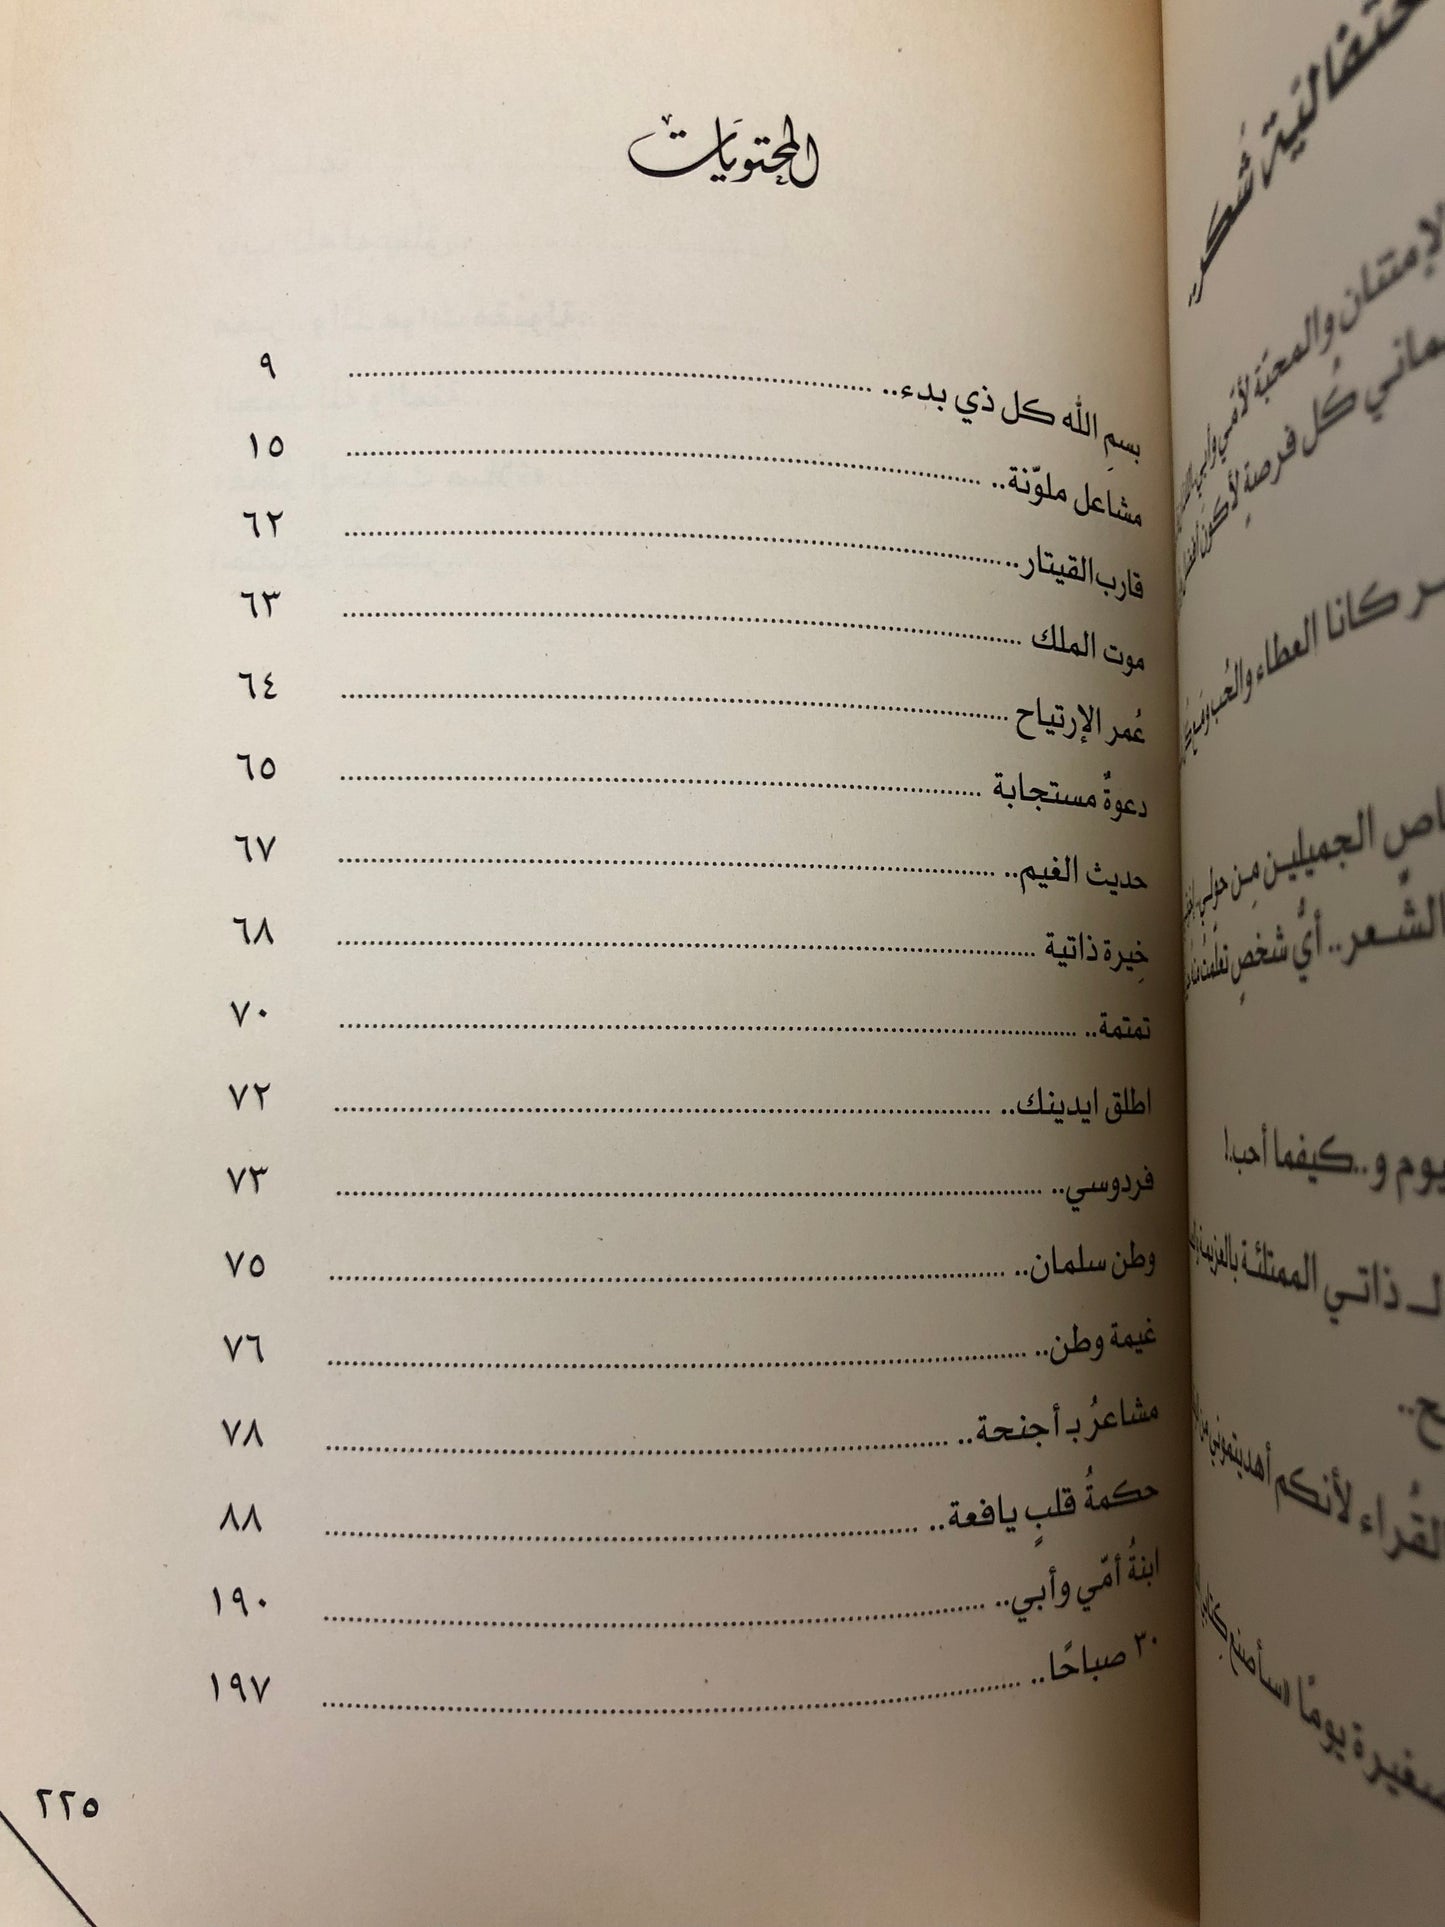 المحتويات
بسمِ الله كل ذي بدء.. ........ ٩
مشاعل ملوّنة.. ........ ١٥
قارب القيتار.. ........ ٦٢
موت الملك ........ ٦٣
عُمر الإرتياح ........ ٦٤
دعوةٌ مستجابة ........ ٦٥
حديث الغيم.. ........ ٦٧
خِيرة ذاتية ........ ٦٨
تمتمة.. ........ ٧٠
اطلق ايدينك.. ........ ٧٢
فردوسي.. ........ ٧٣
وطن سلمان.. ........ ٧٥
غيمة وطن.. ........ ٧٦
مشاعرُ بـ أجنحة.. ........ ٧٨
حكمةُ قلبٍ يافعة.. ........ ٨٨
ابنةُ أمّي وأبي.. ........ ١٩٠
٣٠ صباحًا.. ........ ١٩٧
٢٢٥
شُكر..
الإمتنان والمحبّة لأمّي وأبي
كُل فرصةٍ لأكون
كانا العطاء والحُب
الجميلين مِن حولي
الشّعر.. أيُّ شخصٍ تعلّمتُ منهُ
و..كيفما أحب.!
لـ ذاتي الممتلئة بالعزيمة
القُراء لأنكم أهديتموني من
يومًا «سأصنع